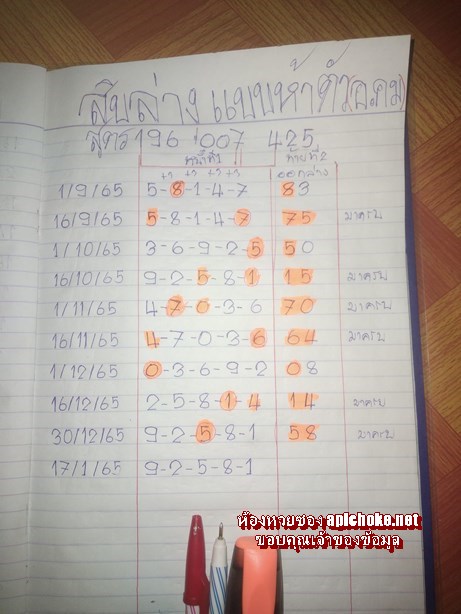 สิบล่าง แบบห้าตัวอคม
สูตร 196 007 425
หน้าที่1 ท้ายที่2
+3 +3 +3 +3 ออกล่าง
1/9/65 5-8-1-4-7 83
16/9/65 5-8-1-4-7 75 มาครบ
1/10/65 3-6-9-2-5 50
16/10/65 9-2-5-8-1 15 มาครบ
1/11/65 4-7-0-3-6 70 มาครบ
16/11/65 4-7-0-3-6 64 มาครบ
1/12/65 0-3-6-9-2 08
16/12/65 2-5-8-1-4 14 มาครบ
30/12/65 9-2-5-8-1 58 มาครบ
17/1/65 9-2-5-8-1
ห้องหวยซอง apichoke.net
ขอบคุณเจ้าของข้อมูล